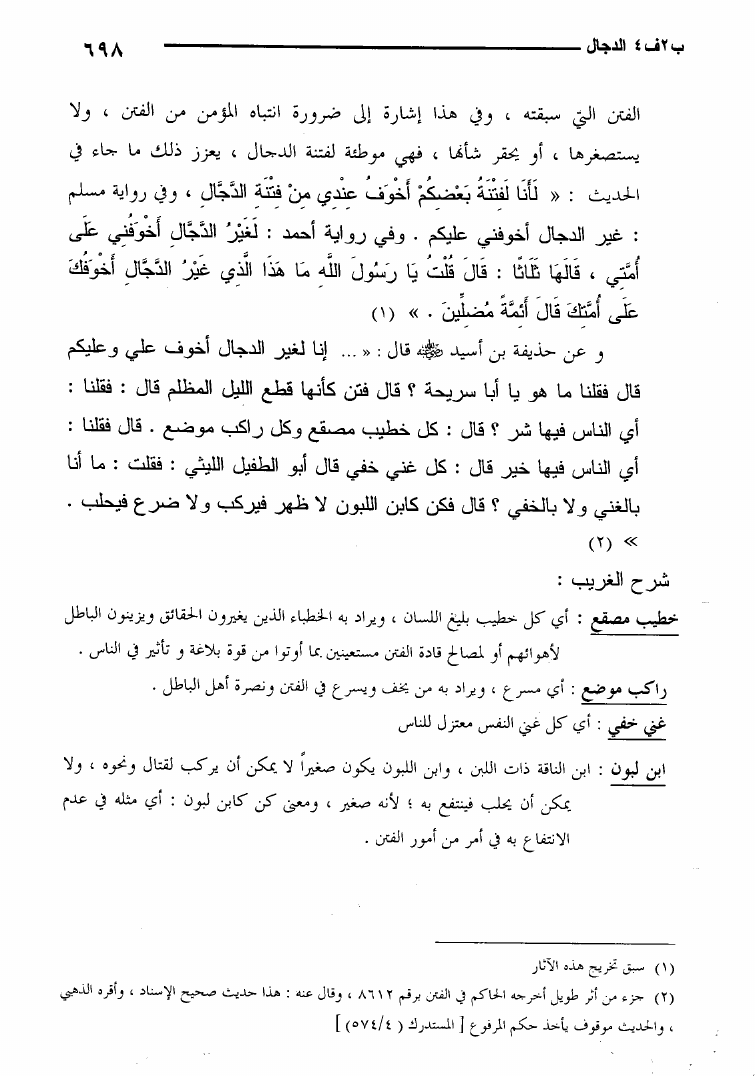 ب٢ف٤ الدجال
٦٩٨
الفتن التي سبقته ، وفي هذا إشارة إلى ضرورة انتباه المؤمن من الفتن ، ولا
يستصغرها ، أو يحقر شأنها ، فهي موطئة لفتنة الدجال ، يعزز ذلك ما جاء في
الحديث : « لَأَنَا لَفِتْنَةُ بَعْضِكُمْ أَخْوَفُ عِنْدِي مِنْ فِتْنَةِ الدَّجَّالِ ، وفي رواية مسلم
: غير الدجال أخوفني عليكم . وفي رواية أحمد : لَغَيْرُ الدَّجَّالِ أَخْوَفُنِي عَلَى
أُمَّتِي ، قَالَهَا ثَلَاثًا : قَالَ قُلْتُ يَا رَسُولَ اللَّهِ مَا هَذَا الَّذِي غَيْرُ الدَّجَّالِ أَخْوَفُكَ
عَلَى أُمَّتِكَ قَالَ أَئِمَّةً مُضِلِّينَ . » (١)
و عن حذيفة بن أسيد ﷺ قال : « ... إنا لغير الدجال أخوف علي وعليكم
قال فقلنا ما هو يا أبا سريحة ؟ قال فتن كأنها قطع الليل المظلم قال : فقلنا :
أي الناس فيها شر ؟ قال : كل خطيب مصقع وكل راكب موضع . قال فقلنا :
أي الناس فيها خير قال : كل غني خفي قال أبو الطفيل الليثي : فقلت : ما أنا
بالغني ولا بالخفي ؟ قال فكن كابن اللبون لا ظهر فيركب ولا ضرع فيحلب .
» (٢)
شرح الغريب :
خطيب مصقع : أي كل خطيب بليغ اللسان ، ويراد به الخطباء الذين يغيرون الحقائق ويزينون الباطل
لأهوائهم أو لمصالح قادة الفتن مستعينين بما أوتوا من قوة بلاغة و تأثير في الناس .
راكب موضع : أي مسرع ، ويراد به من يخف ويسرع في الفتن ونصرة أهل الباطل .
غني خفي : أي كل غني النفس معتزل للناس
ابن لبون : ابن الناقة ذات اللبن ، وابن اللبون يكون صغيراً لا يمكن أن يركب لقتال ونحوه ، ولا
يمكن أن يحلب فينتفع به ؛ لأنه صغير ، ومعنى كن كابن لبون : أي مثله في عدم
الانتفاع به في أمر من أمور الفتن .
(١) سبق تخريج هذه الآثار
(٢) جزء من أثر طويل أخرجه الحاكم في الفتن برقم ٨٦١٢ ، وقال عنه : هذا حديث صحيح الإسناد ، وأقره الذهبي
، والحديث موقوف يأخذ حكم المرفوع [ المستدرك ( ٥٧٤/٤) ]